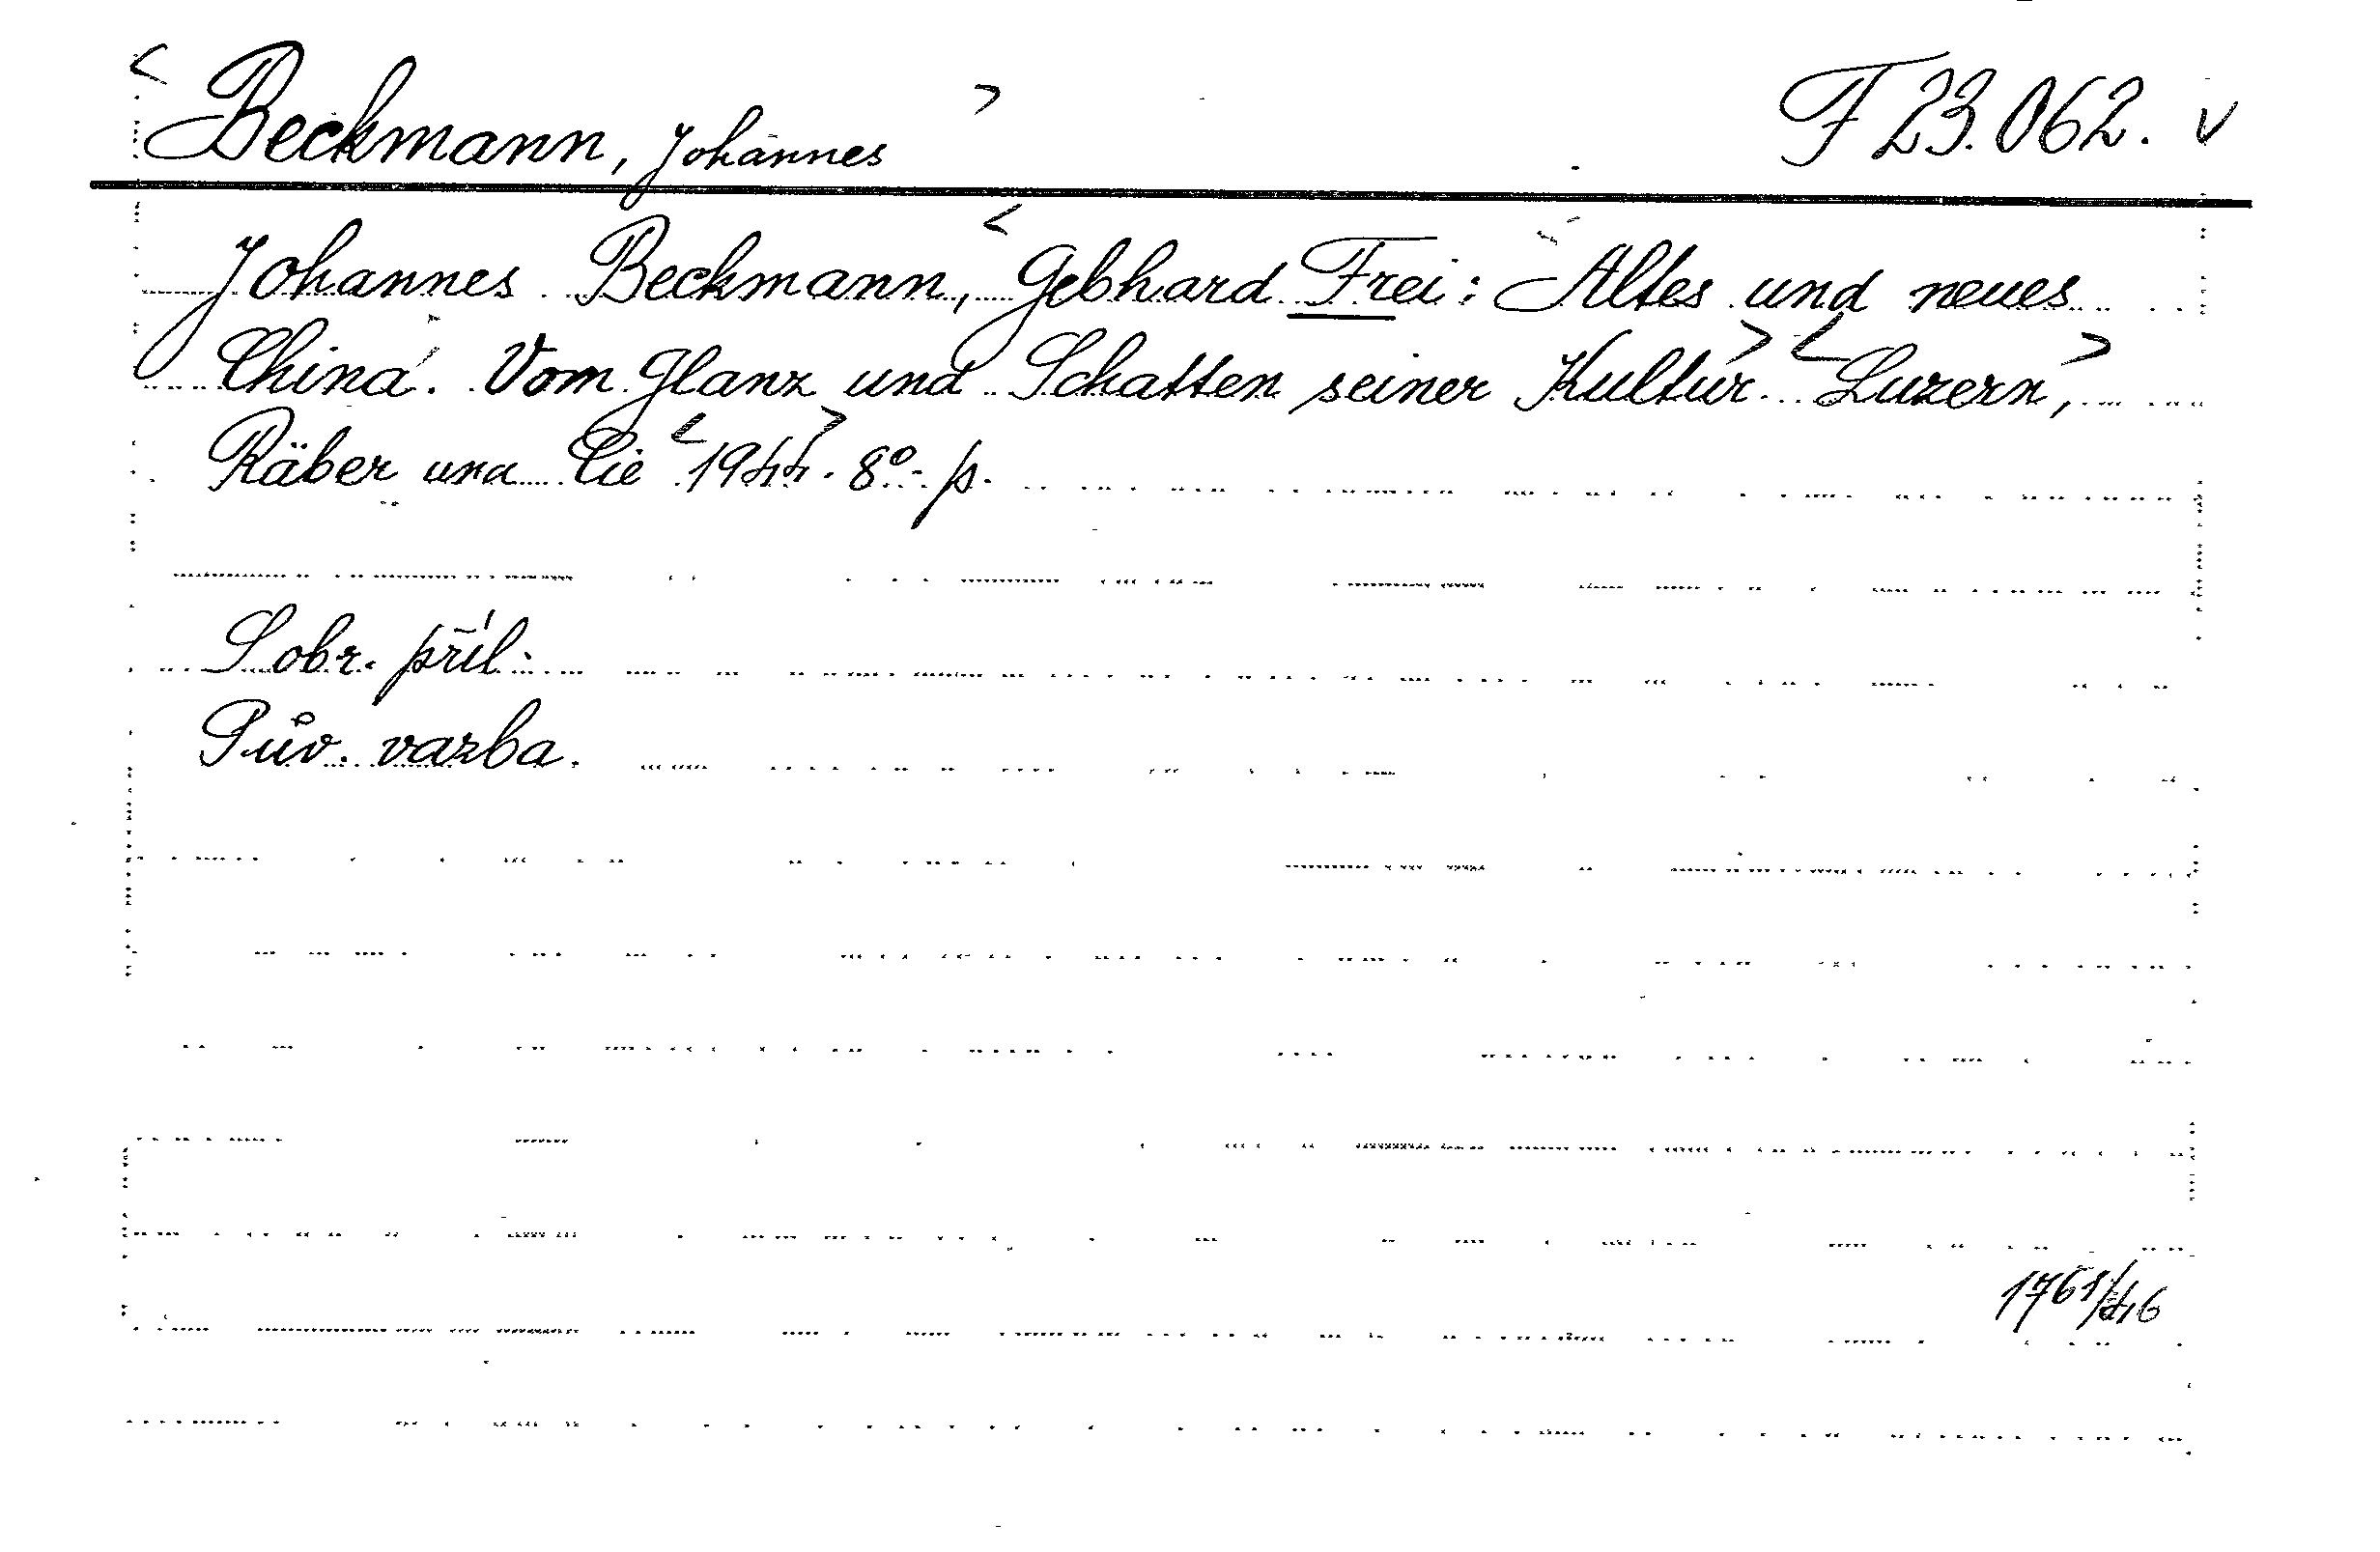 < Beckmann, Johannes > F 23.062. v
Johannes Beckmann, < Gebhard Frei: Altes und neues
China. Vom Glanz und Schatten seiner Kultur > < Luzern, >
Räber und Cie < 1944 >. 8° - p.
S obr. příl.
Pův. vazba.
1761/46